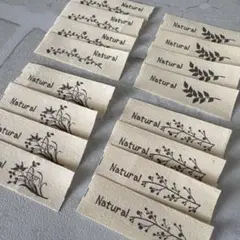 Natural
Natural
Natural
Natural
Natural
Natural
Natural
Natural
Natural
Natural
Natural
Natural
Natural
Natural
Natural
Natural